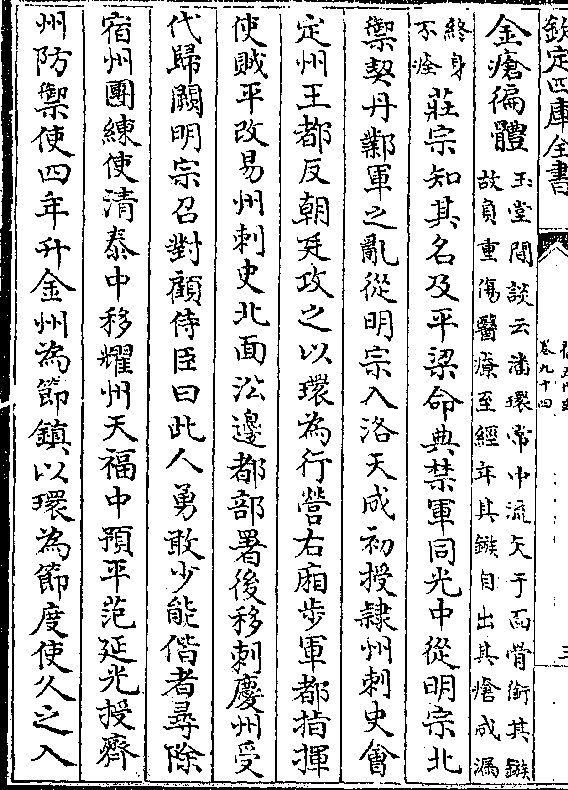 欽定四庫全書
卷九十四
金瘡徧體
玉堂閒談云潘環常中流矢于面骨銜其鏃
故負重傷醫療至經年其鏃自出其瘡成漏
終身
不痊
莊宗知其名及平梁命典禁軍同光中從明宗北
禦契丹鄴軍之亂從明宗入洛天成初授隸州刺史會
定州王都反朝廷攻之以環為行營右廂步軍都指揮
使賊平改易州刺史北面㳂邊都部署後移刺慶州受
代歸闕明宗召對顧侍臣曰此人勇敢少能偕者尋除
宿州團練使清泰中移耀州天福中預平范延光授齊
州防禦使四年升金州為節鎮以環為節度使久之入